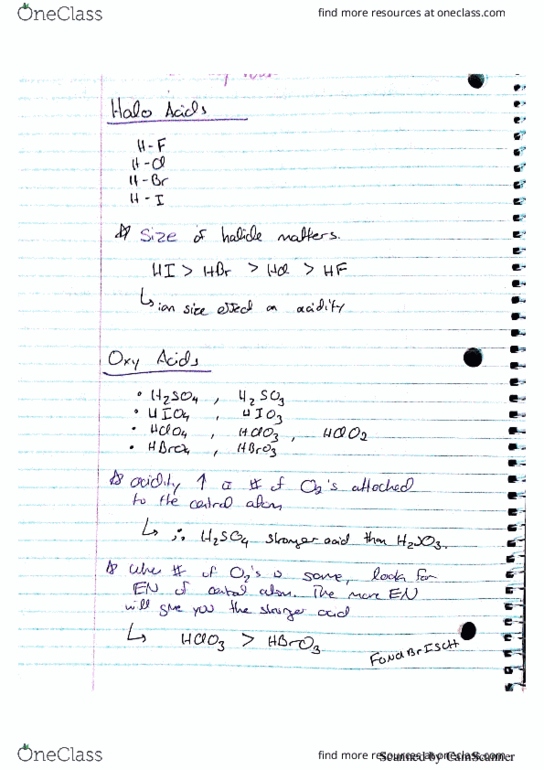 OneClass
find more resources at oneclass.com
Halo Acids
H-F
H-Cl
H-Br
H-I
Size of halide matters.
HI > HBr > HCl > HF
↳ ion size effect on acidity
Oxy Acids
• H₂SO₄ , H₂SO₃
• HIO₄ , HIO₃
• HClO₄ , HClO₃ , HClO₂
• HBrO₄ , HBrO₃
acidity ↑ # of O₂'s attached
to the central atom
↳ ∴ H₂SO₄ stronger acid than H₂SO₃.
when # of O₂'s is same, look for
EN of central atom. The more EN
will give you the stronger acid
↳ HClO₃ > HBrO₃
FONClBrISCH
OneClass
find more resources at oneclass.com
Scanned by CamScanner